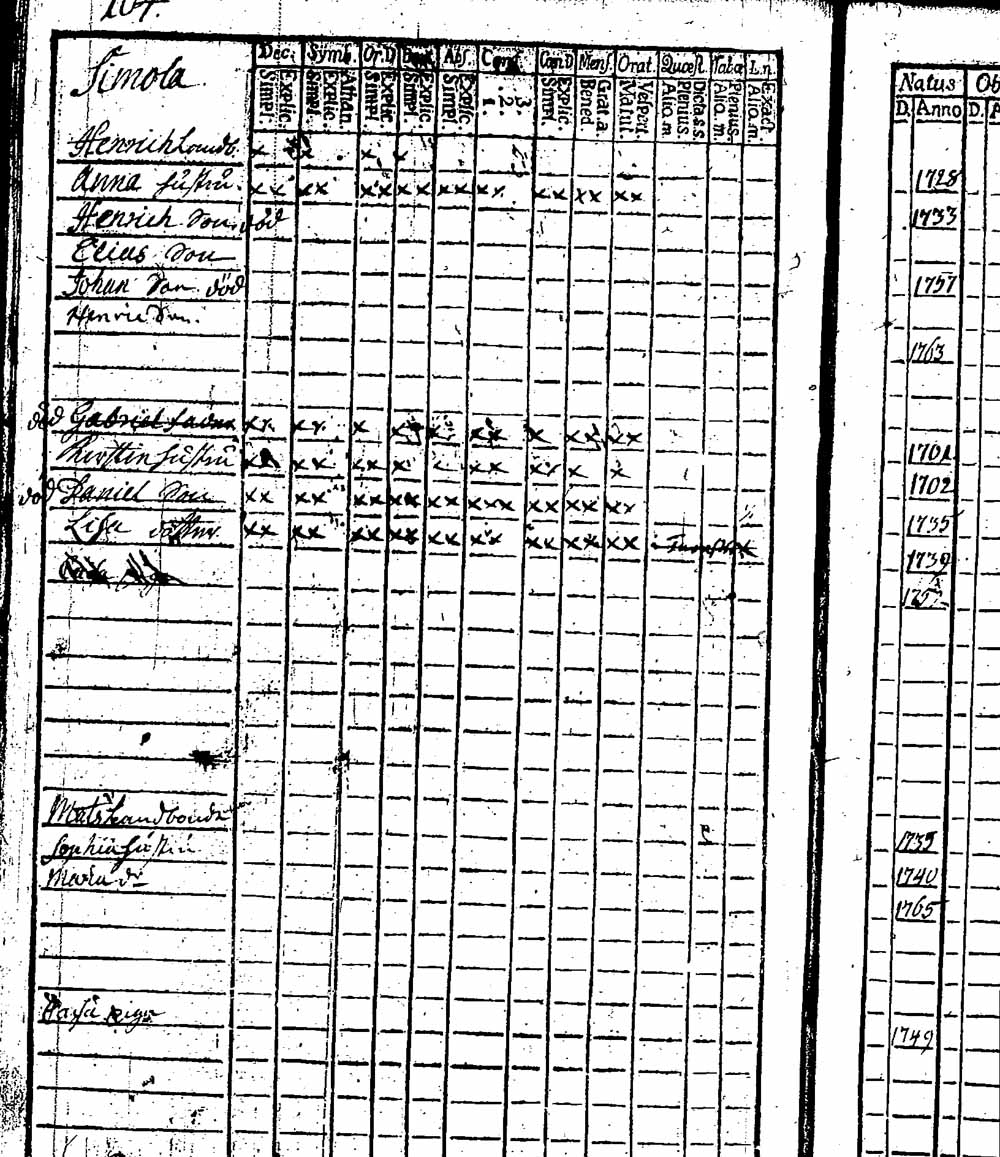 104.
Simola
Dec. Symb. Or.D Bapt. Abs. Cœn. Can.D Mens. Orat. Quæst. Tabæ L.n.
Explic. Simpl. Athan. Explic. Simpl. Explic. Simpl. Explic. Simpl. Explic. Simpl. 3. 2. 1. Explic. Simpl. Grat. a. Bened. Vespert. Matut. Dicta s.s. Plenius. Alio. m Plenius. Alio. m Exact. Alio. m.
Natus Ob
D. Anno D. A
Henrich Landb.
Anna hustru 1728
Henrich Son död 1733
Elias Son
Johan Son död 1757
Henric Son.
1763
död Gabriel
Kirstin hustru 1701
död Daniel Son 1702
Lisa dotter 1735
1739
1757
Mats Landbonde
Sophia hustru 1735
Maria dr 1740
1765
piga
1749